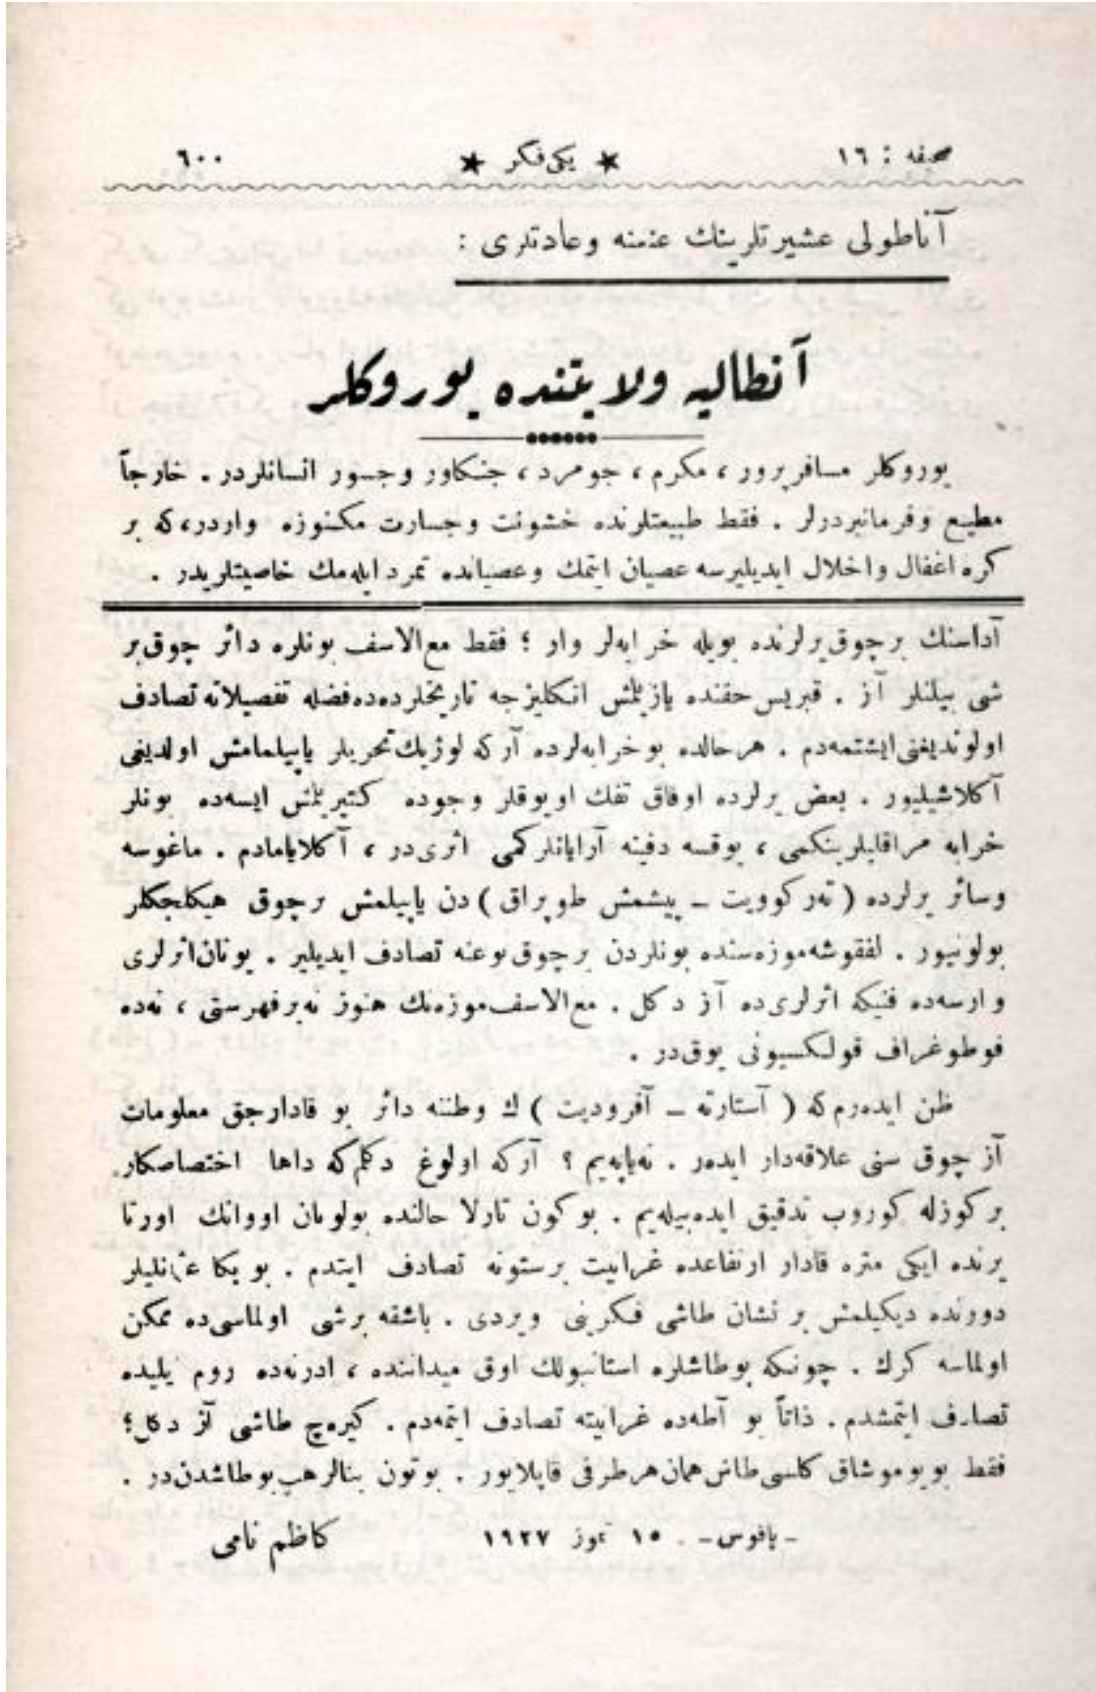 صحیفه : ١٦ ★ یکی فکر ★ ٦٠٠
آناطولی عشیرتلرینك عنعنه وعادتلری :
آنطالیه ولایتنده یوروكلر
یوروكلر مسافرپرور ، مكرم ، جومرد ، جنكاور وجسور انسانلردر . خارجاً
مطیع وفرمانبردرلر . فقط طبیعتلرنده خشونت وجسارت مكنوزه واردر،كه بر
كره اغفال واخلال ایدیلیرسه عصیان ایتمك وعصیانده تمرد ایله‌مك خاصیتلریدر .
آداسنك برچوق یرلرنده بویله خرابه‌لر وار ؛ فقط مع‌الاسف بونلره دائر چوق بر
شی بیلنلر آز . قبریس حقنده یازیلمش انكلیزجه تاریخلرده‌ده فضله تفصیلاته تصادف
اولوندیغنی ایشتمه‌دم . هرحالده بو خرابه‌لرده آركه لوژیك تحریلر یاپیلمامش اولدیغی
آكلاشیلیور . بعض یرلرده اوفاق تفك اویوقلر وجوده كتیریلمش ایسه‌ده بونلر
خرابه مراقلیلرینكمی ، یوقسه دفینه آرایانلركمی اثری‌در ، آكلایامادم . ماغوسه
وسائر یرلرده ( ته‌ركوویت ـ پیشمش طوپراق ) دن یاپیلمش برچوق هیكلجكلر
بولونیور . لفقوشه موزه‌سنده بونلردن برچوق نوعنه تصادف ایدیلیر . یونان اثرلری
وارسه‌ده فنیكه اثرلری‌ده آز دكل . مع‌الاسف موزه‌نك هنوز نه‌بر فهرستی ، نه‌ده
فوطوغراف قولكسیونی یوق‌در .
ظن ایده‌رم‌كه ( آستارته ـ آفرودیت ) ك وطننه دائر بو قادارجق معلومات
آز چوق سنی علاقه‌دار ایده‌ر . نه‌یاپه‌یم ؟ آركه اولوغ دكلم‌كه داها اختصاصكار
بر كوزله كوروب تدقیق ایده‌بیله‌یم . بو كون تارلا حالنده بولونان اووانك اورتا
یرنده ایكی متره قادار ارتفاعده غرانیت برستونه تصادف ایتدم . بو بكا عثمانلیلر
دورنده دیكیلمش بر نشان طاشی فكرینی ویردی . باشقه برشی اولماسی‌ده ممكن
اولماسه كرك . چونكه بو طاشلره استانبولك اوق میداننده ، ادرنه‌ده روم ایلیده
تصادف ایتمشدم . ذاتاً بو آطه‌ده غرانیته تصادف ایتمه‌دم . كیره‌ج طاشی آز دكل؛
فقط بو یوموشاق كلسی طاش همان هر طرفی قاپلایور . بوتون بنالر هپ بو طاشدن‌در .
ـ پافوس ـ ١٥ تموز ١٩٢٧ كاظم نامی